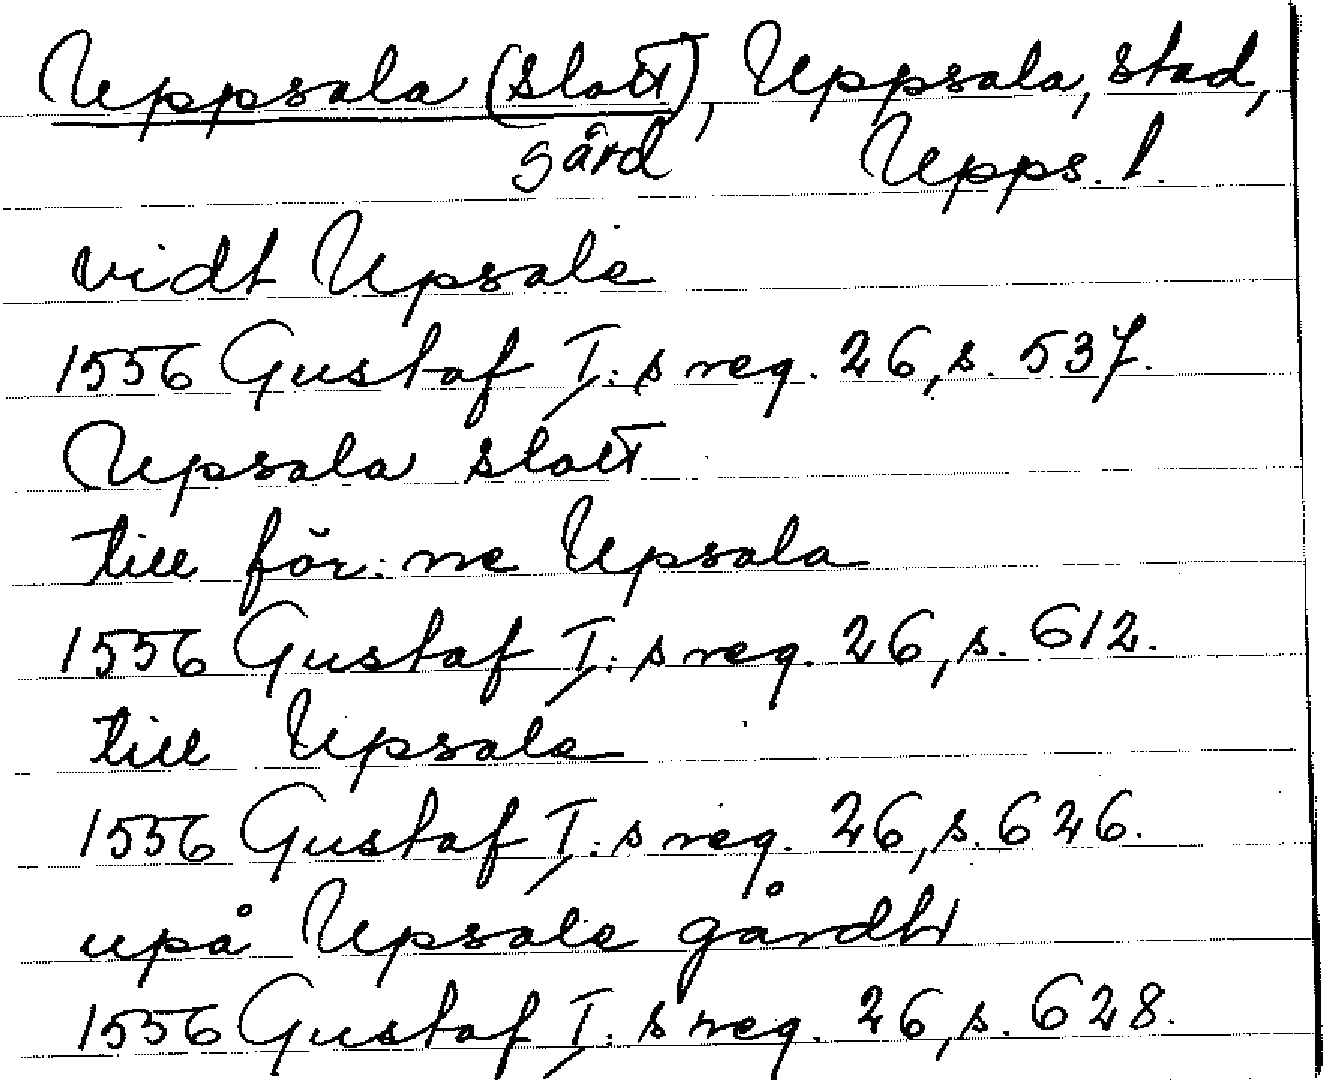 Uppsala (slott), Uppsala, stad,
gård Upps. l.
vidt Upsale
1556 Gustaf I:s reg. 26, s. 537.
Upsala slott
till för:ne Upsala
1556 Gustaf I:s reg. 26, s. 612.
till Upsale
1556 Gustaf I:s reg. 26, s. 626.
upå Upsale gårdh
1556 Gustaf I:s reg. 26, s. 628.